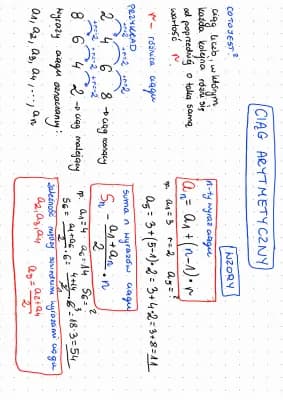 CIĄG ARYTMETYCZNY
CO TO JEST?
ciąg liczb, w którym
każda kolejna różni się
od poprzedniej o taką samą
wartość r.
r - różnica ciągu
PRZYKŁAD
+r=2 +r=2 +r=2
2 4 6 8 → ciąg rosnący
8 6 4 2 → ciąg malejący
wyrazy ciągu oznaczamy:
a₁, a₂, a₃, a₄, ..., aₙ
WZORY
n-ty wyraz ciągu
aₙ = a₁ + (n-1) · r
np. a₁=3 r=2 a₅=?
a₅ = 3 + (5-1) · 2 = 3 + 4 · 2 = 3 + 8 = 11
suma n wyrazów ciągu
Sₙ = a₁ + aₙ / 2 · n
np. a₁=4 a₆=14 S₆=?
S₆ = a₁ + a₆ / 2 · 6
18 · 3 = 54
między sąsiednimi wyrazami ciągu
a₂, a₃, a₄
a₃ = a₂ + a₄ / 2